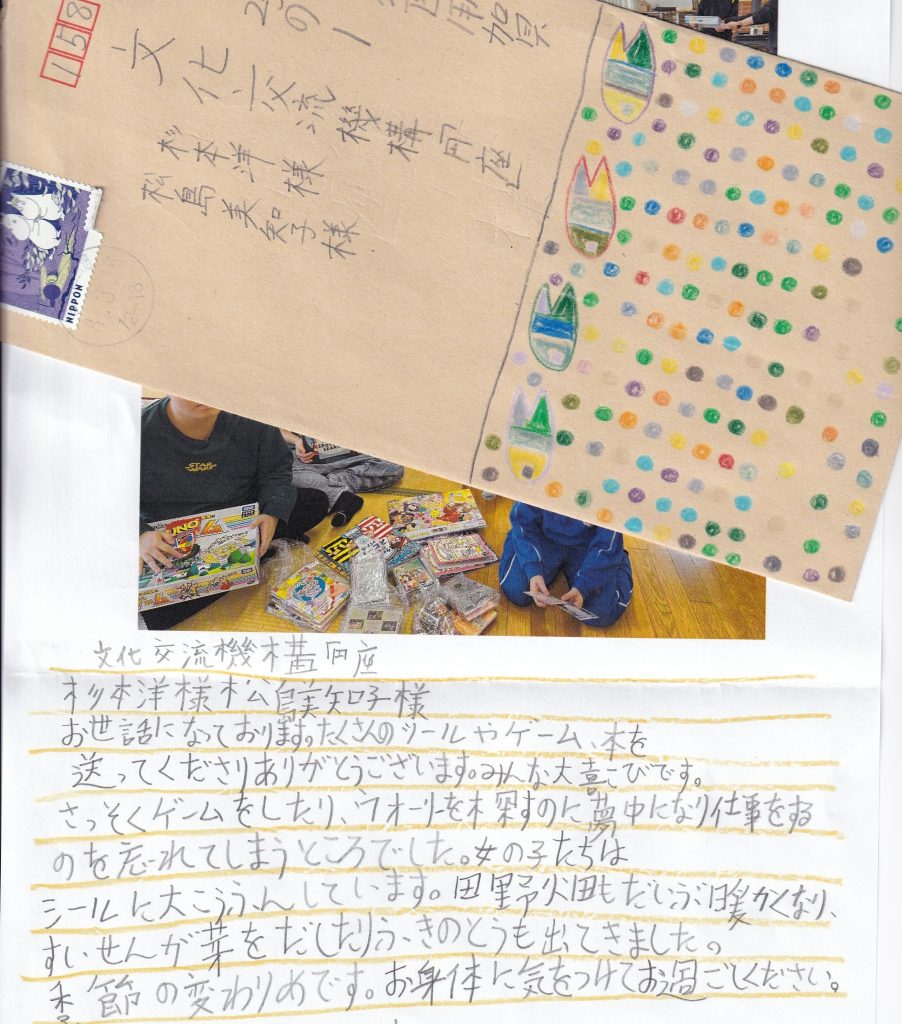 158
文化交流機構円座
杉本洋様
松島美知子様
NIPPON
12-13
STAR WARS
UNO
文化交流機構円座
杉本洋様松島美知子様
お世話になっております。たくさんのシールやゲーム、本を
送ってくださりありがとうございます。みんな大喜こびです。
さっそくゲームをしたり、ウォーリーを探すのに夢中になり仕事をする
のを忘れてしまうところでした。女の子たちは
シールに大こうふんしています。田野火田もだいぶ暖かくなり、
すいせんが芽をだしたりふきのとうも出てきました。
季節の変わりめです。お身体に気をつけてお過ごしください。